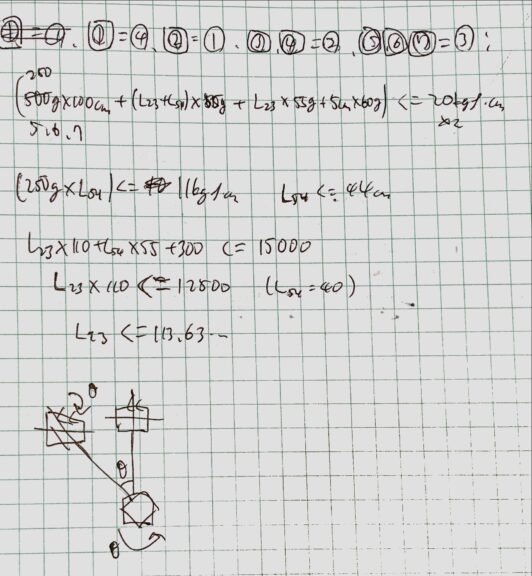 ①=④, ②=①, ③, ④=②, ⑤⑥⑦=③;
250
(500g×100cm + (L23+L54)×55g + L23×55g+5cm×60g) <= 20kgf·cm
5,6,7 ×2
(250g×L54) <= 11kgfcm L54 <= 44cm
L23×110+L54×55+300 <= 15000
L23×110 <= 12500 (L54=40)
L23 <= 113.63...
θ
θ
θ